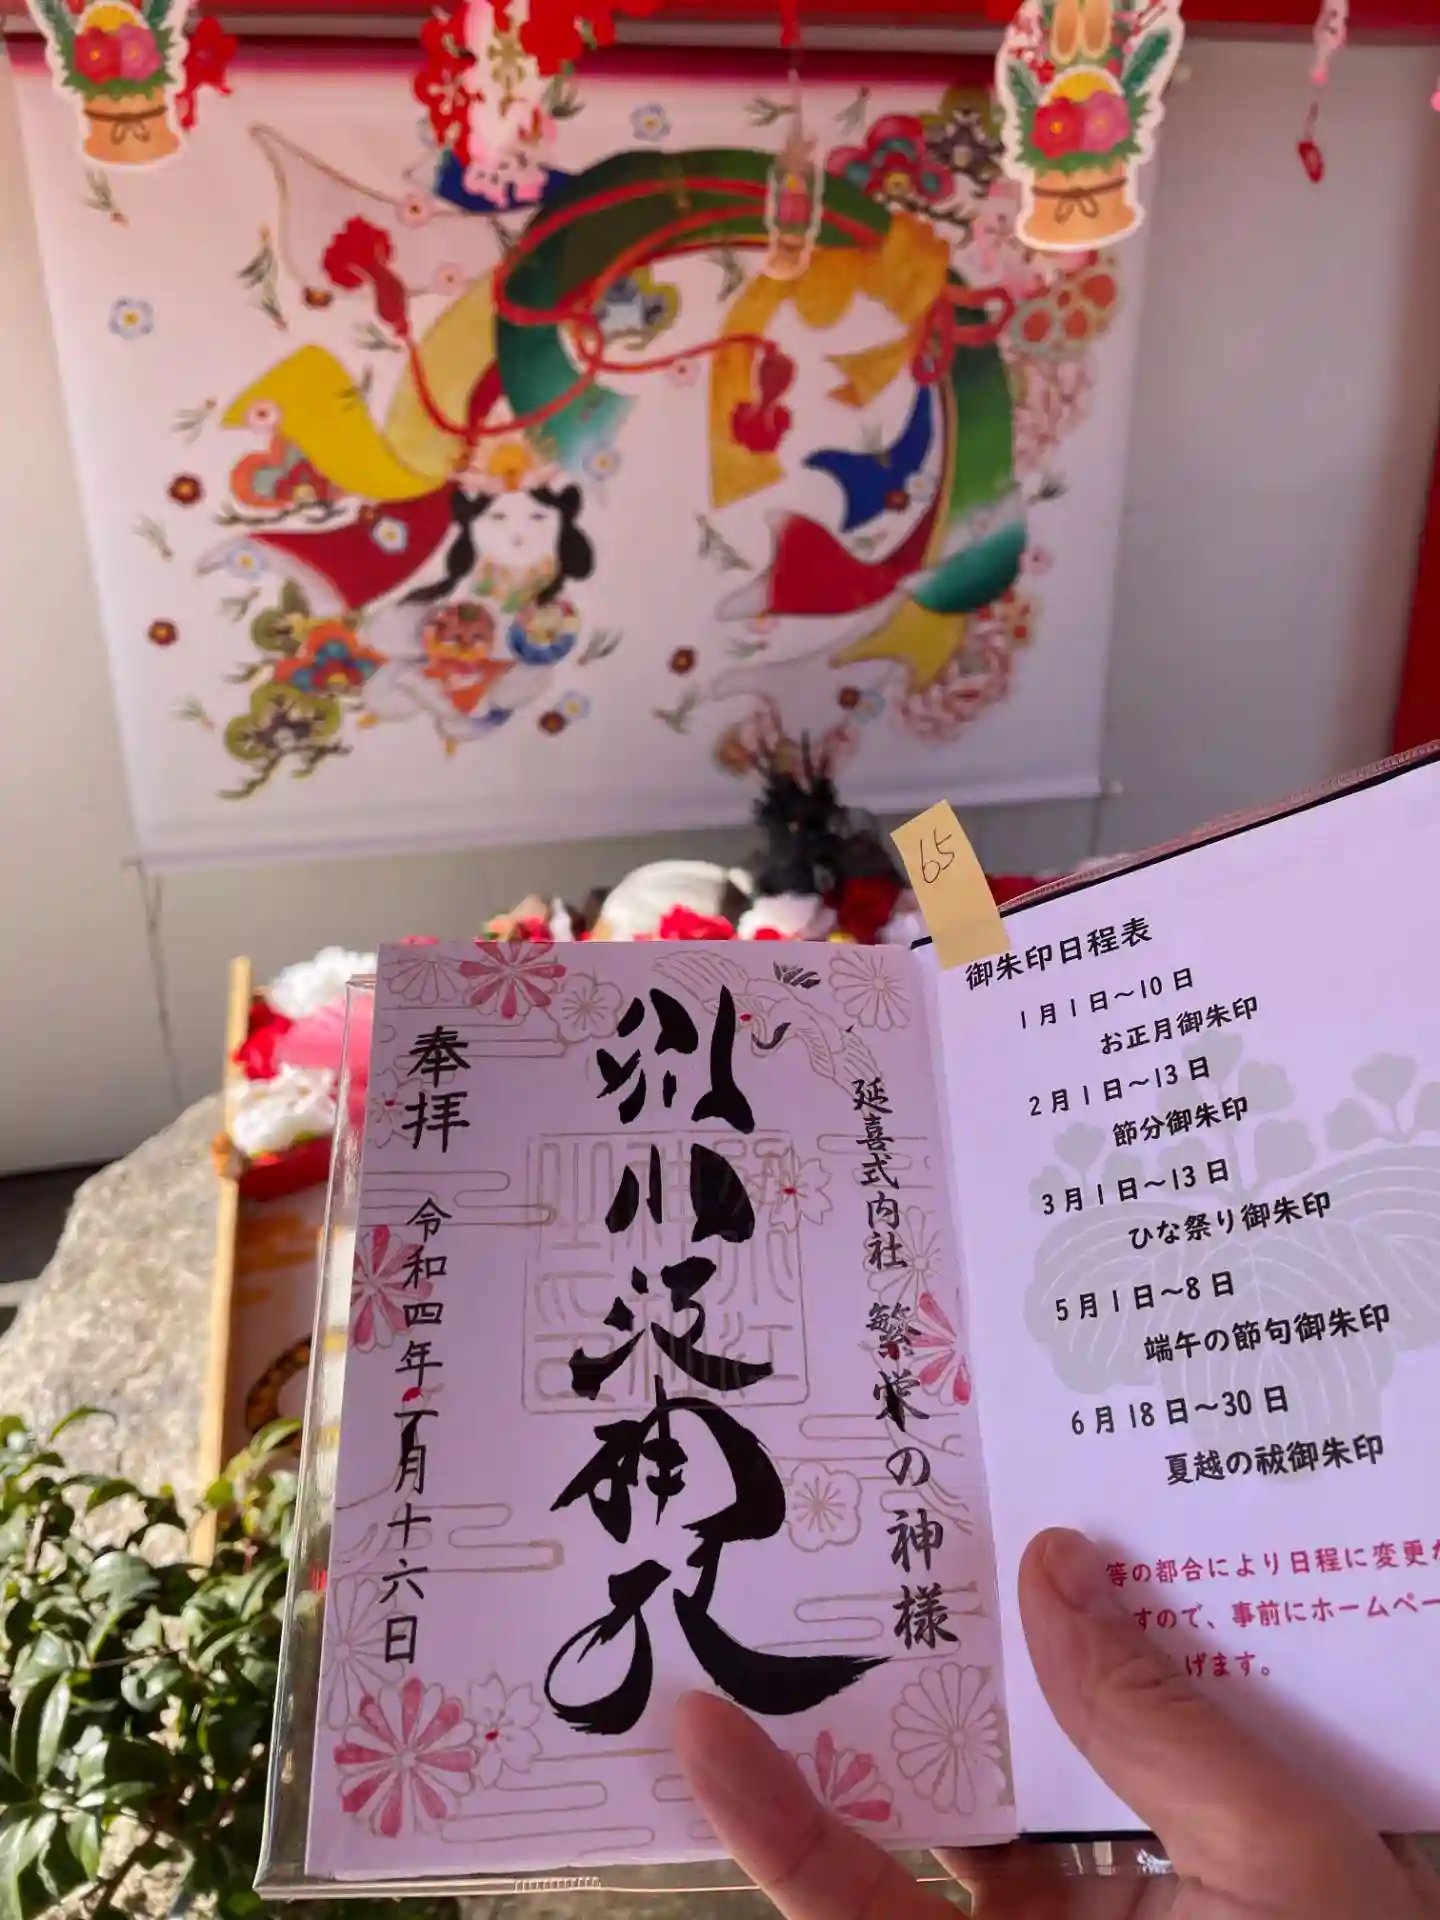 延喜式内社 繁栄の神様
別小江神社
奉拝
令和四年一月十六日
65
御朱印日程表
1月1日～10日
お正月御朱印
2月1日～13日
節分御朱印
3月1日～13日
ひな祭り御朱印
5月1日～8日
端午の節句御朱印
6月18日～30日
夏越の祓御朱印
等の都合により日程に変更が
すので、事前にホームペー
げます。